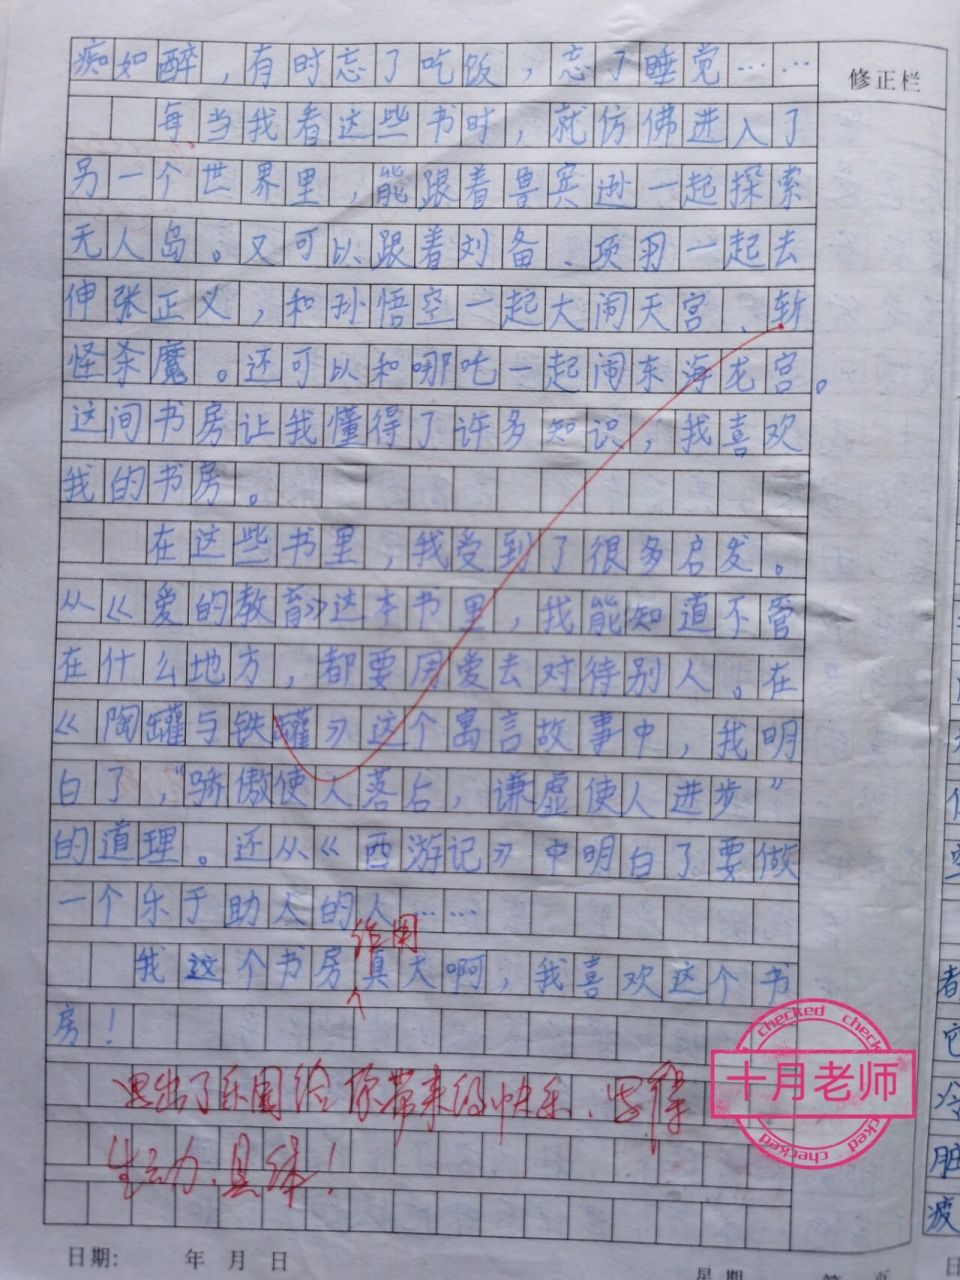 痴如醉，有时忘了吃饭，忘了睡觉……
修正栏
每当我看这些书时，就仿佛进入了
另一个世界里，能跟着鲁宾逊一起探索
无人岛。又可以跟着刘备、项羽一起去
伸张正义，和孙悟空一起大闹天宫、斩
怪杀魔。还可以和哪吒一起闹东海龙宫。
这间书房让我懂得了许多知识，我喜欢
我的书房。
在这些书里，我受到了很多启发。
从《爱的教育》这本书里，我能知道不管
在什么地方，都要用爱去对待别人。在
《陶罐与铁罐》这个寓言故事中，我明
白了，“骄傲使人落后，谦虚使人进步”
的道理。还从《西游记》中明白了要做
一个乐于助人的人……
作用
我这个书房真大啊，我喜欢这个书
房！
checked checked
十月老师
checked
写出了乐园给你带来的快乐，
生动、具体！
日期： 年 月 日
星期